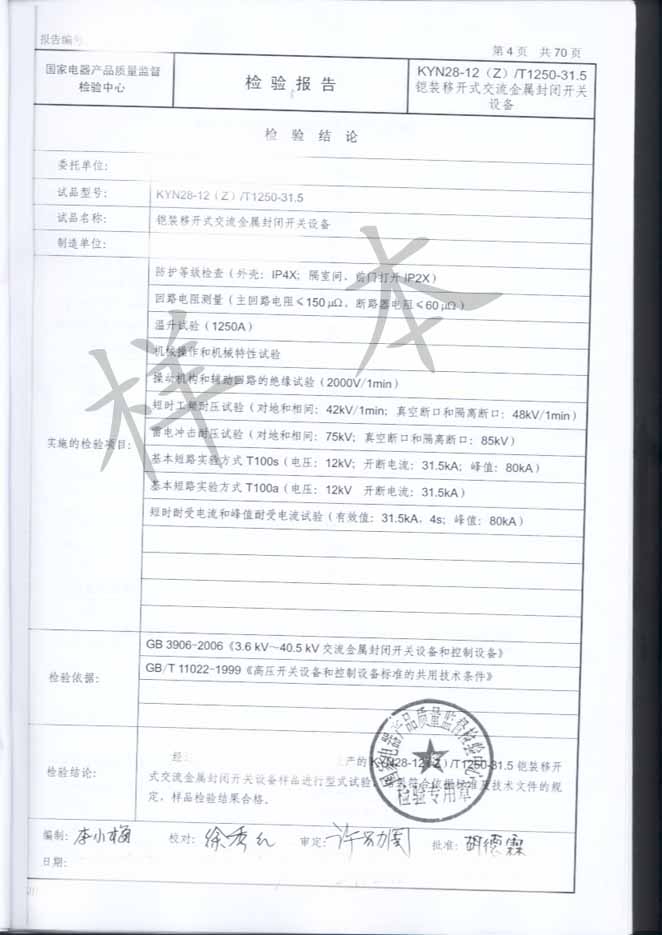 报告编号
第 4 页 共 70 页
国家电器产品质量监督
检验中心
检 验 报 告
KYN28-12（Z）/T1250-31.5
铠装移开式交流金属封闭开关
设备
检 验 结 论
委托单位：
试品型号： KYN28-12（Z）/T1250-31.5
试品名称： 铠装移开式交流金属封闭开关设备
制造单位：
实施的检验项目：
防护等级检查（外壳：IP4X；隔室间、前门打开 IP2X）
回路电阻测量（主回路电阻≤150 μΩ、断路器电阻≤60 μΩ）
温升试验（1250A）
机械操作和机械特性试验
操动机构和辅助回路的绝缘试验（2000V/1min）
短时工频耐压试验（对地和相间：42kV/1min；真空断口和隔离断口：48kV/1min）
雷电冲击耐压试验（对地和相间：75kV；真空断口和隔离断口：85kV）
基本短路实验方式 T100s（电压：12kV；开断电流：31.5kA；峰值：80kA）
基本短路实验方式 T100a（电压：12kV 开断电流：31.5kA）
短时耐受电流和峰值耐受电流试验（有效值：31.5kA，4s；峰值：80kA）
样本
检验依据：
GB 3906-2006《3.6 kV～40.5 kV 交流金属封闭开关设备和控制设备》
GB/T 11022-1999《高压开关设备和控制设备标准的共用技术条件》
检验结论：
经 产的 KYN28-12（Z）/T1250-31.5 铠装移开
式交流金属封闭开关设备样品进行型式试验，结果符合依据标准及技术文件的规
定，样品检验结果合格。
国家电器产品质量监督检验中心
检验专用章
编制：李小梅 校对：徐秀红 审定：许 批准：胡德霖
日期：